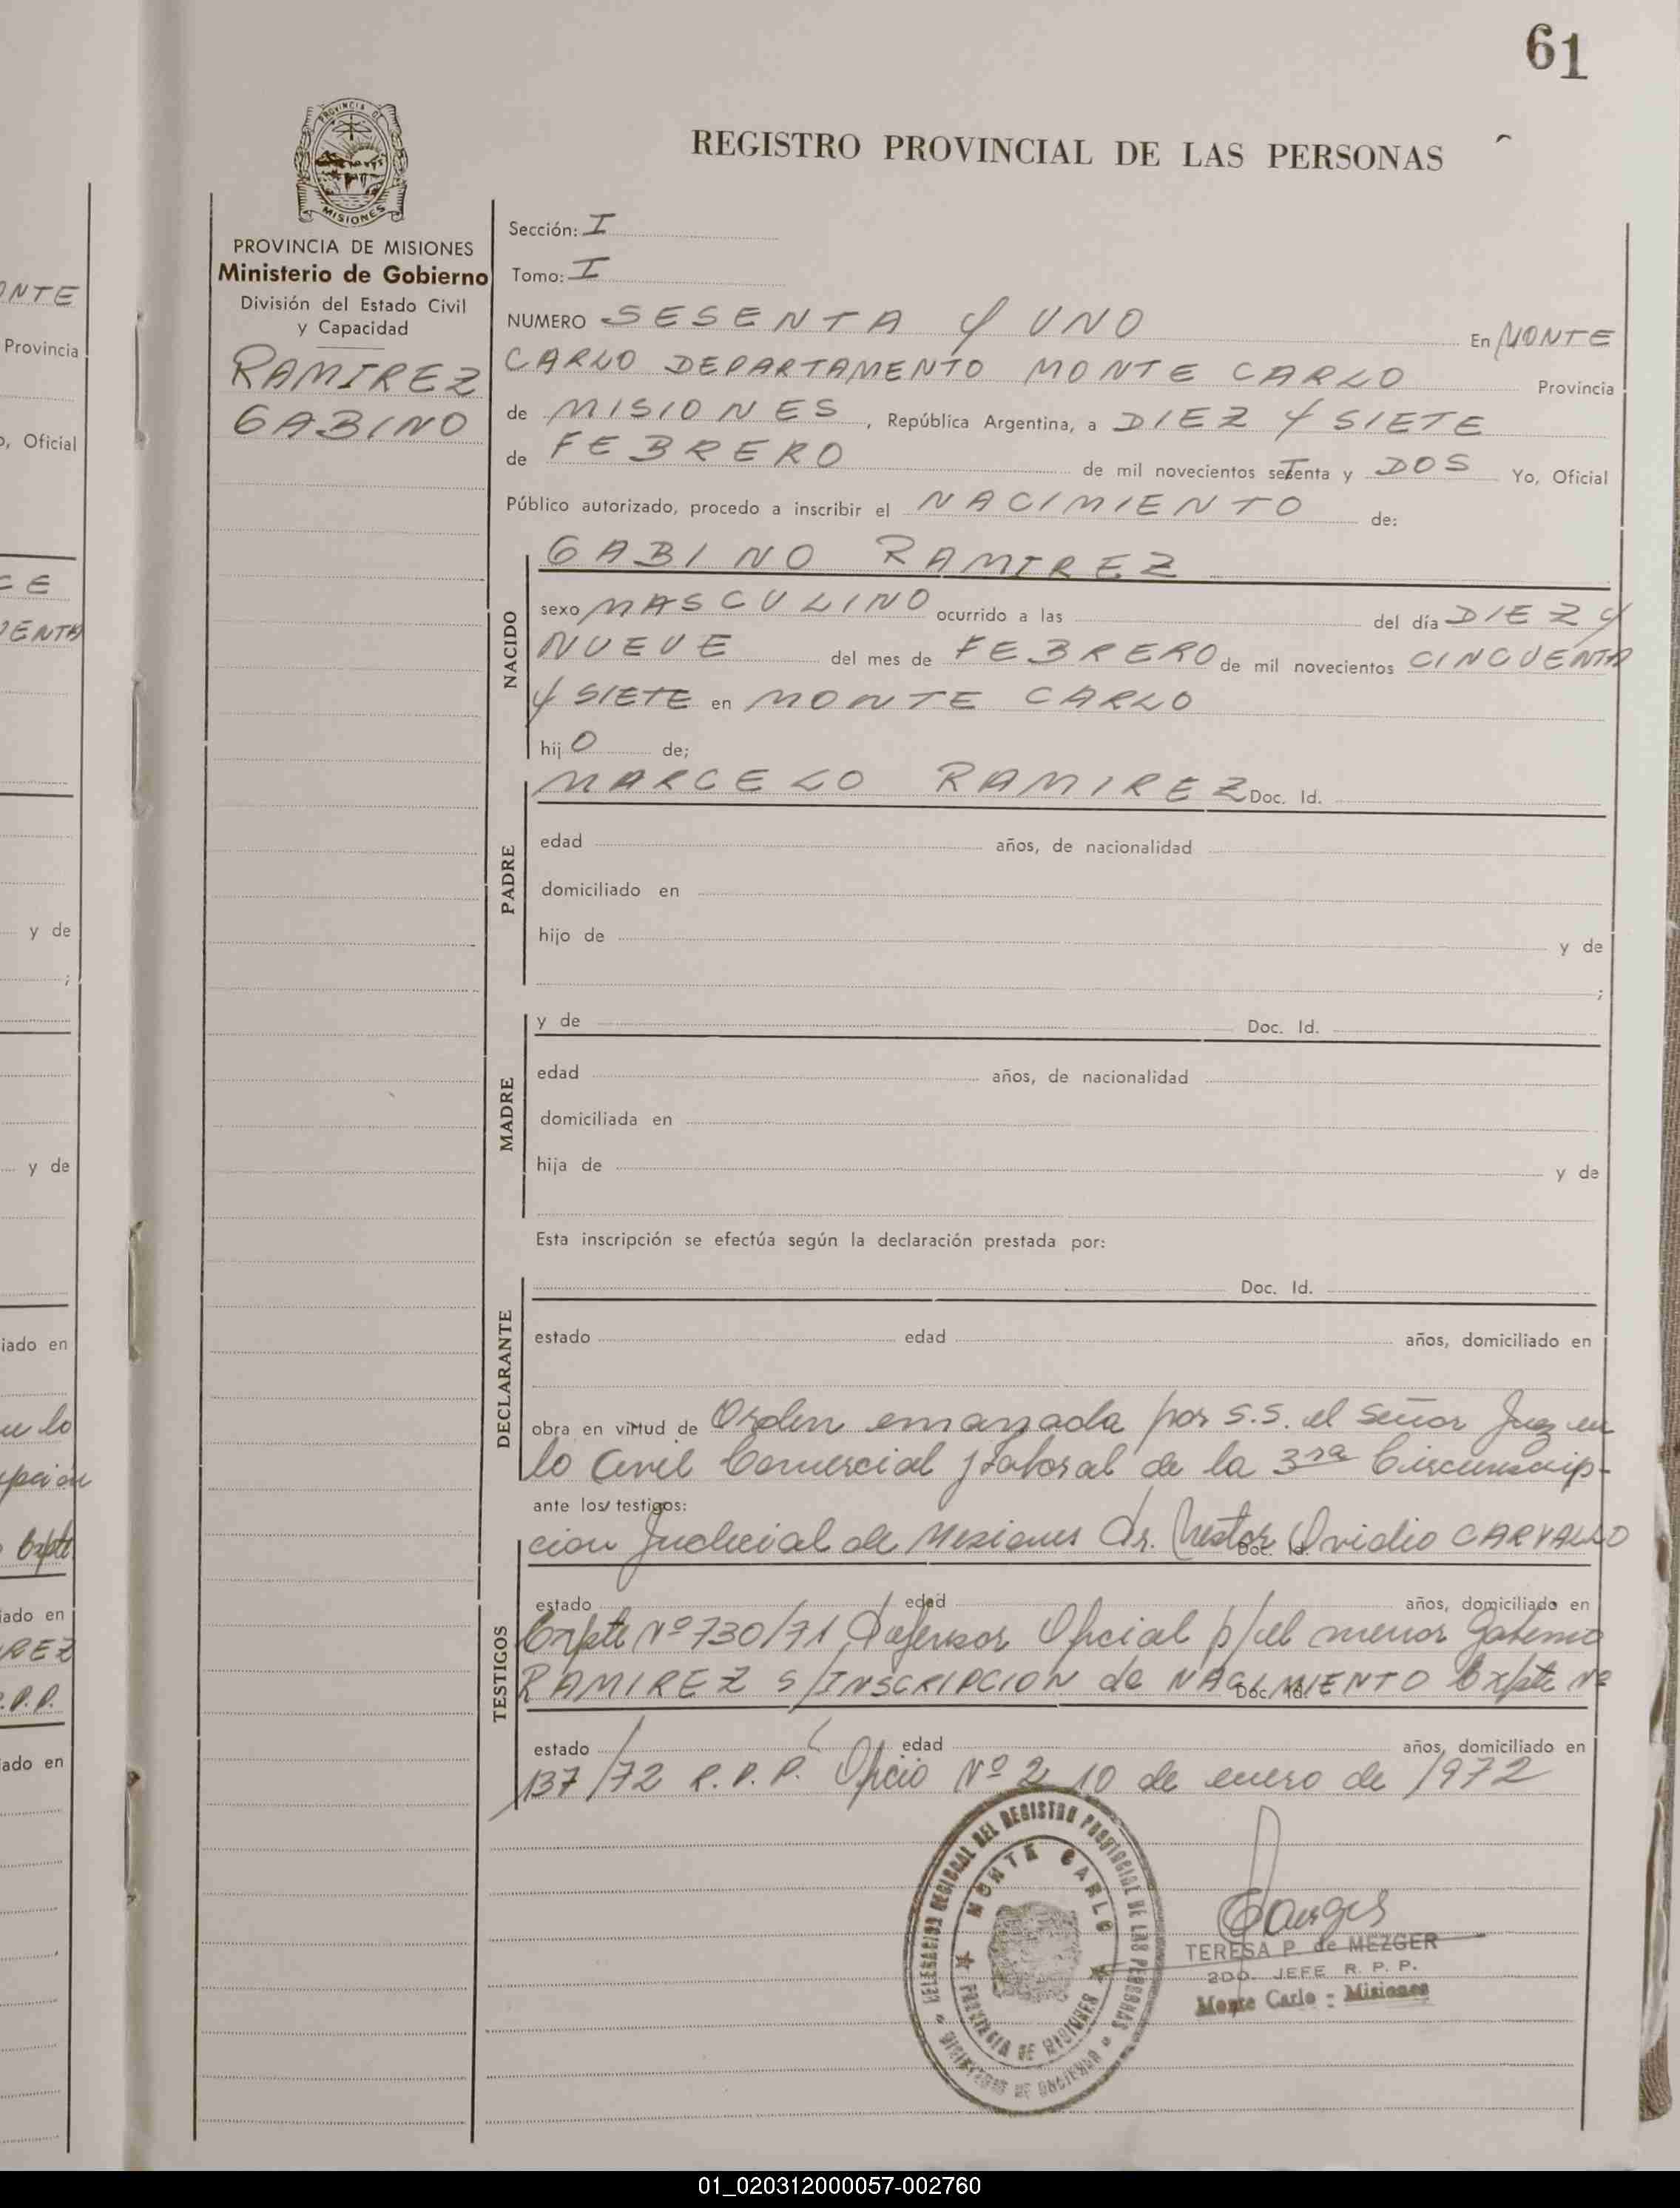 61
PROVINCIA DE
MISIONES
REGISTRO PROVINCIAL DE LAS PERSONAS
PROVINCIA DE MISIONES
Ministerio de Gobierno
División del Estado Civil
y Capacidad
RAMIREZ
GABINO
Sección: I
Tomo: I
NUMERO SESENTA Y UNO En MONTE
CARLO DEPARTAMENTO MONTE CARLO Provincia
de MISIONES, República Argentina, a DIEZ Y SIETE
de FEBRERO de mil novecientos setenta y DOS Yo, Oficial
Público autorizado, procedo a inscribir el NACIMIENTO de:
GABINO RAMIREZ
NACIDO
sexo MASCULINO ocurrido a las del día DIEZ Y
NUEVE del mes de FEBRERO de mil novecientos CINCUENTA
Y SIETE en MONTE CARLO
hijO de;
MARCELO RAMIREZ Doc. Id.
PADRE
edad años, de nacionalidad
domiciliado en
hijo de y de
;
y de Doc. Id.
MADRE
edad años, de nacionalidad
domiciliada en
hija de y de
Esta inscripción se efectúa según la declaración prestada por:
Doc. Id.
DECLARANTE
estado edad años, domiciliado en
obra en virtud de Orden emanada por S.S. el Señor Juez en
lo Civil Comercial y Laboral de la 3ra Circunscrip-
ante los testigos:
cion Judicial de Misiones Dr. Nestor Ovidio CARVALLO
Doc. Id.
TESTIGOS
estado edad años, domiciliado en
Expte Nº 730/71 Defensor Oficial p/el menor Gabino
RAMIREZ S/INSCRIPCION de NACIMIENTO Expte Nº
Doc. Id.
estado edad años, domiciliado en
137/72 R.P.P. Oficio Nº 2 10 de enero de 1972
DELEGACION REGIONAL DEL REGISTRO PROVINCIAL DE LAS PERSONAS
MONTE CARLO
PROVINCIA DE MISIONES
TERESA P. de MEZGER
2DO. JEFE R. P. P.
Monte Carlo - Misiones
ONTE
Provincia
o, Oficial
CE
UENTA
y de
;
y de
iado en
en lo
pción
Expte
iado en
REZ
.P.P.
ado en
01_020312000057-002760